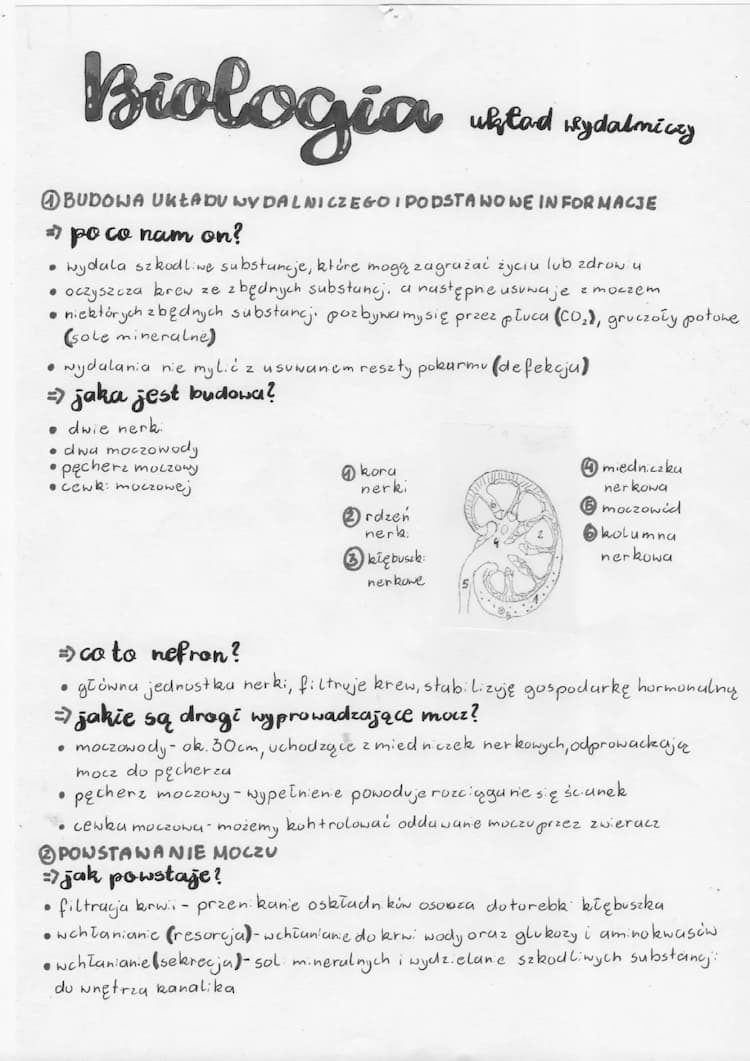 Biologia układ wydalniczy
① BUDOWA UKŁADU WYDALNICZEGO I PODSTAWOWE INFORMACJE
⇒ po co nam on?
• wydala szkodliwe substancje, które mogą zagrażać życiu lub zdrowiu
• oczyszcza krew ze zbędnych substancji, a następne usuwaje z moczem
• niektórych zbędnych substancji pozbywamy się przez płuca (CO₂), gruczoły potowe
(sole mineralne)
• wydalania nie mylić z usuwaniem reszty pokarmu (defekcja)
⇒ jaka jest budowa?
• dwie nerki
• dwa moczowody
• pęcherz moczowy
• cewki moczowej
① kora
nerki
② rdzeń
nerki
③ kłębuszki
nerkowe
4
2
5
1
④ miedniczka
nerkowa
⑤ moczowód
⑥ kolumna
nerkowa
⇒ co to nefron?
• główna jednostka nerki, filtruje krew, stabilizuję gospodarkę hormonalną
⇒ jakie są drogi wyprowadzające mocz?
• moczowody - ok. 30cm, uchodzące z miedniczek nerkowych, odprowadzają
mocz do pęcherza
• pęcherz moczowy - wypełnienie powoduje rozciąganie się ścianek
• cewka moczowa - możemy kontrolować oddawane moczu przez zwieracz
② POWSTAWANIE MOCZU
⇒ jak powstaje?
• filtracja krwi - przenikanie oskładników osocza do torebki kłębuszka
• wchłanianie (resorcja) - wchłaniane do krwi wody oraz glukozy i aminokwasów
• wchłanianie (sekrecja) - soli mineralnych i wydzielane szkodliwych substancji
do wnętrza kanalika